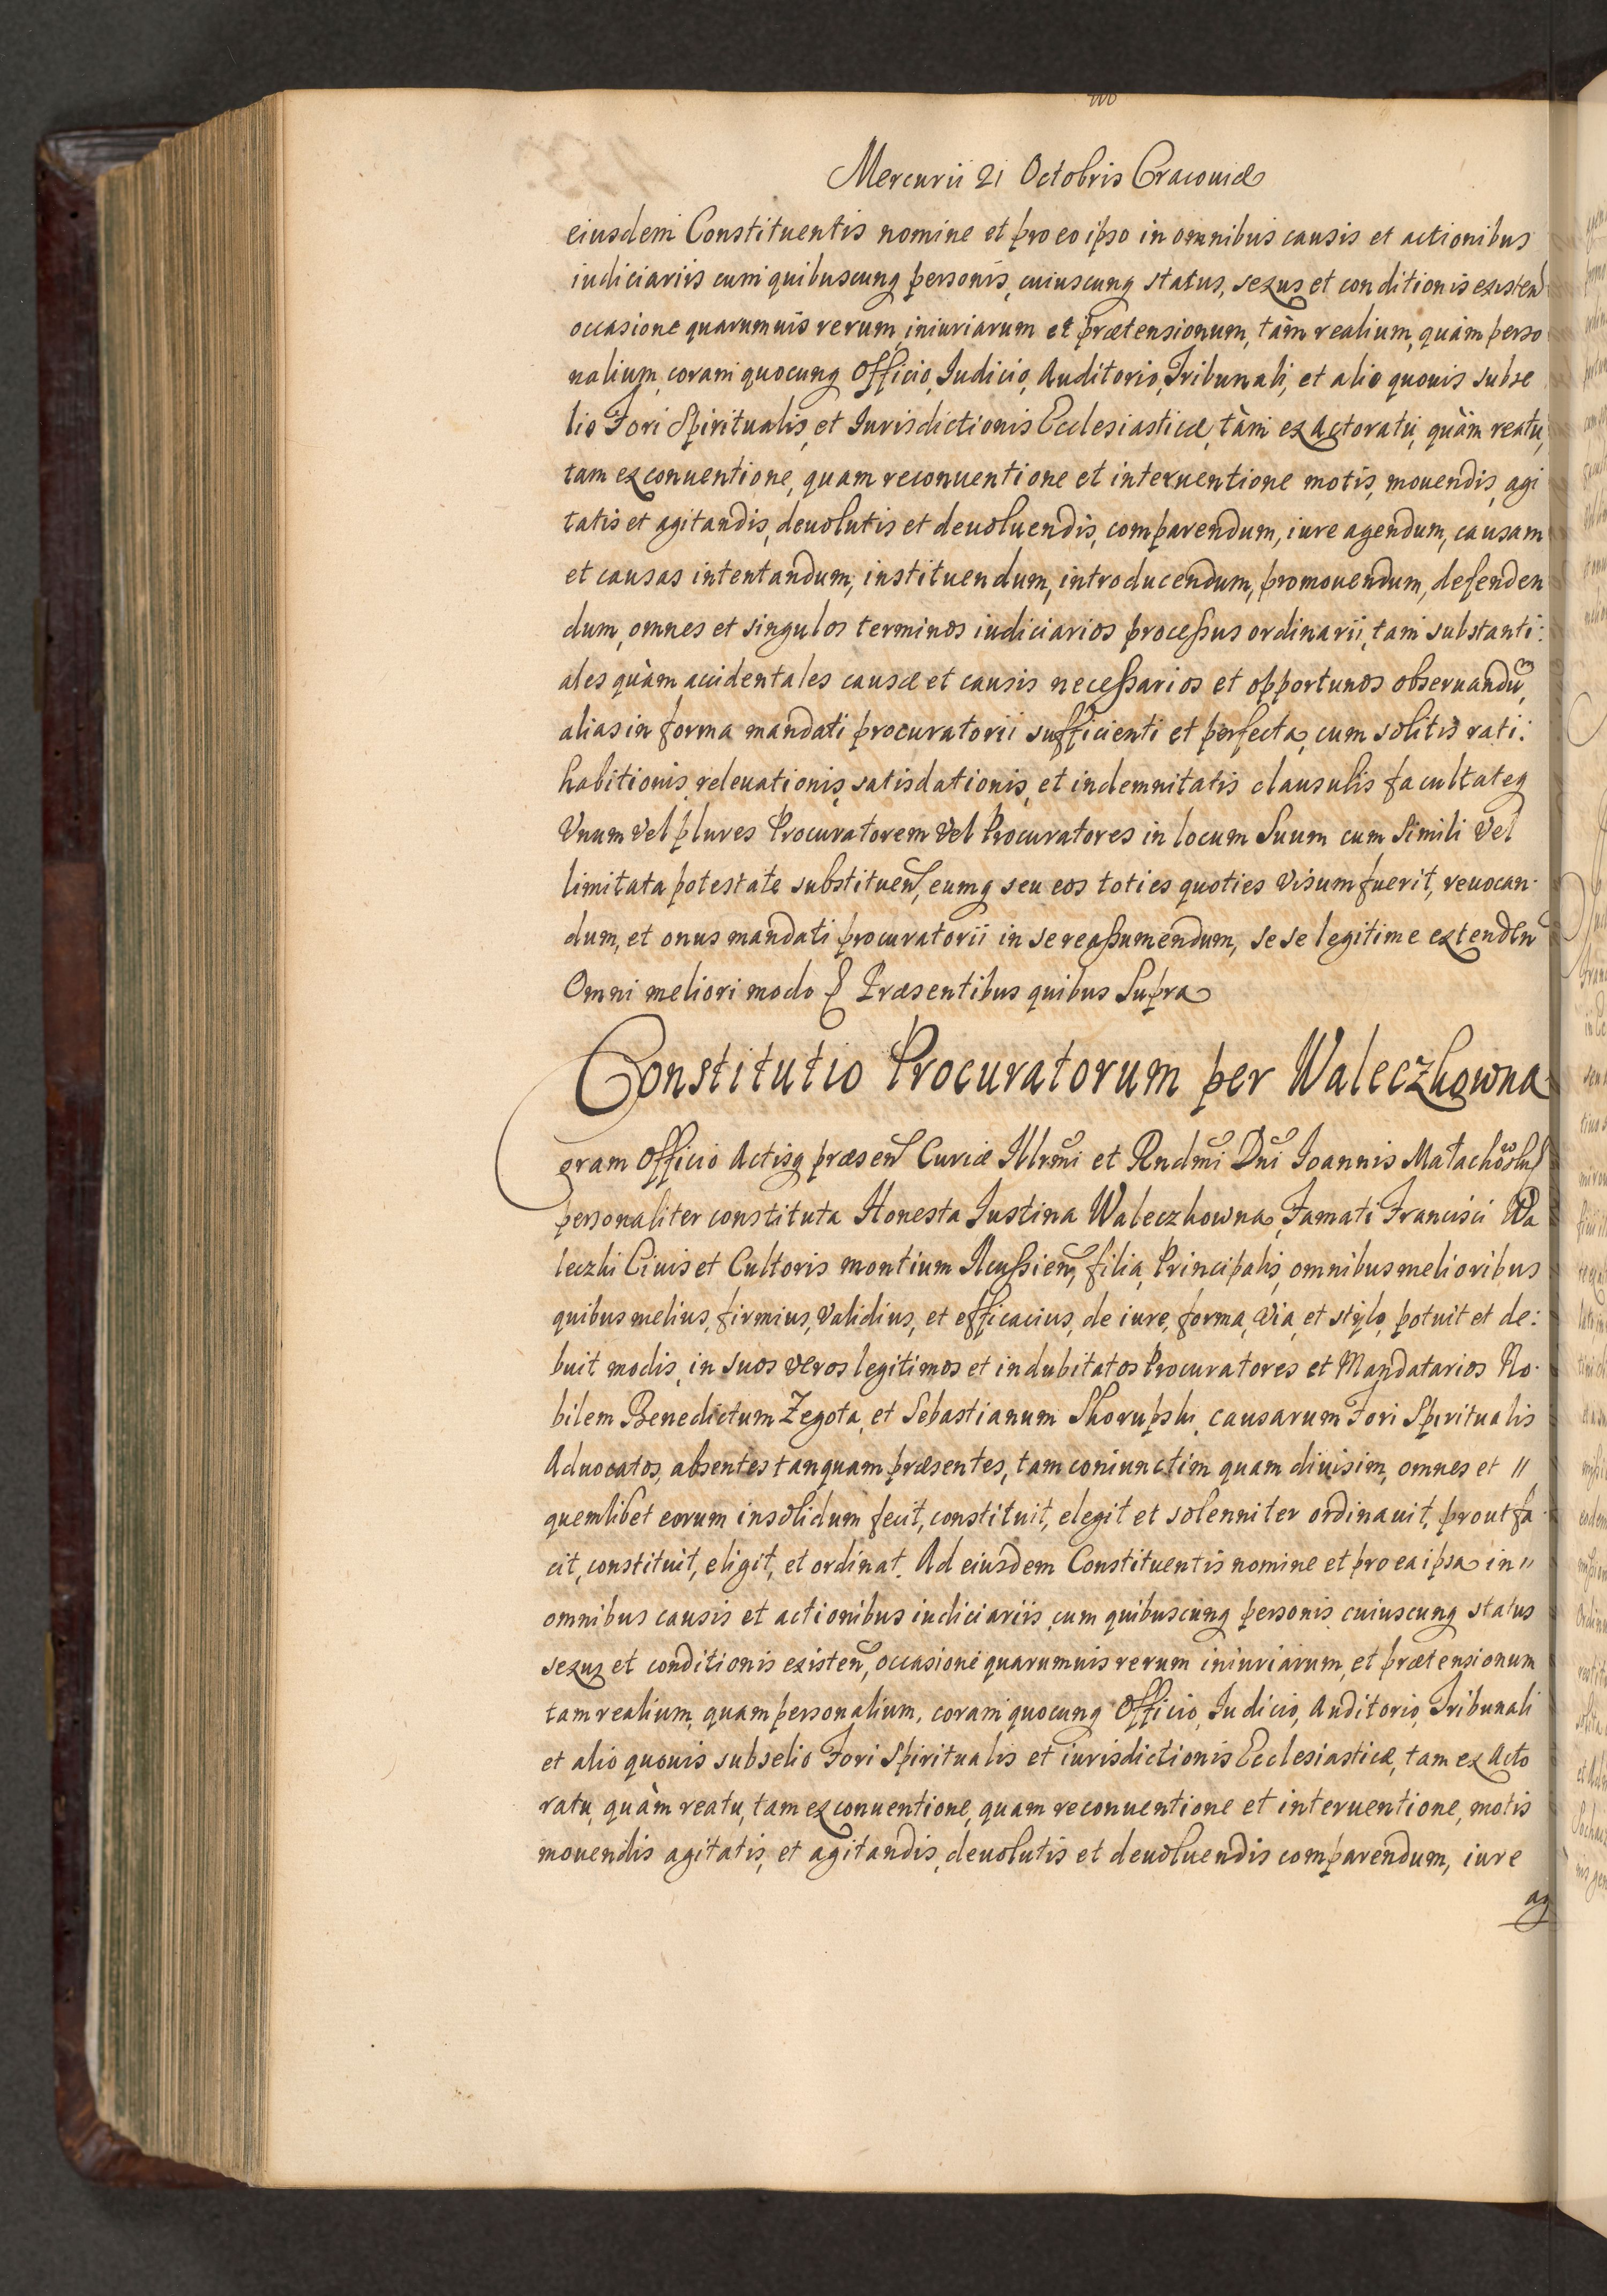 Mercurii 21 Octobris Cracouiæ
eiusdem Constituentis nomine et pro eo ipso in omnibus causis et actionibus
iudiciariis cum quibuscunq personis, cuiuscunq status, sexus et conditionis existen
occasione quarumuis rerum, iniuriarum et prætensionum, tàm realium, quàm perso
nalium, coram quocunq Officio, Iudicio, Auditorio, Tribunali, et alio quouis subse
lio Fori Spiritualis, et Iurisdictionis Ecclesiasticæ, tàm ex Actoratu, quàm reatu,
tam ex conuentione, quam reconuentione et interuentione motis, mouendis, agi
tatis et agitandis, deuolutis et deuoluendis, comparendum, iure agendum, causam
et causas intentandum, instituendum, introducendum, promouendum, defenden
dum, omnes et singulos terminos iudiciarios processus ordinarii, tam substanti:
ales quàm accidentales causæ et causis necessarios et opportunos obseruandũ,
alias in forma mandati procuratorii sufficienti et perfecta, cum solitis rati:
habitionis, releuationis, satisdationis, et indemnitatis clausulis facultateq
Vnum vel plures Procuratorem vel Procuratores in locum Suum cum Simili vel
limitata potestate substituen, eumq seu eos toties quoties visum fuerit, reuocan-
dum, et onus mandati procuratorii in se reassumendum, se se legitime extenden
Omni meliori modo Præsentibus quibus Supra
Constitutio Procuratorum per Waleczkowna
Coram Officio Actisq præsen Curiæ Illrmi et Rndmi Dni Ioannis Małachowski
personaliter constituta Honesta Iustina Waleczkowna, Famati Francisci Wa
leczki Ciuis et Cultoris montium Ilcussien, filia, Principalis, omnibus melioribus
quibus melius, firmius, validius, et efficacius, de iure, forma, via, et stylo, potuit et de:
buit modis, in suos veros legitimos et indubitatos Procuratores et Mandatarios No-
bilem Benedictum Zegota, et Sebastianum Skorupski, causarum Fori Spiritualis
Aduocatos, absentes tanquam præsentes, tam coniunctim quam diuisim, omnes et //
quemlibet eorum insolidum fecit, constituit, elegit et solenniter ordinauit, prout fa-
cit, constituit, eligit, et ordinat. Ad eiusdem Constituentis nomine et pro ea ipsa in //
omnibus causis et actionibus iudiciariis, cum quibuscunq personis cuiuscunq status
sexus et conditionis existen, occasione quarumuis rerum iniuriarum, et prætensionum
tam realium, quam personalium, coram quocunq Officio, Iudicio, Auditorio, Tribunali
et alio quouis subselio Fori Spiritualis et iurisdictionis Ecclesiasticæ, tam ex Acto
ratu, quàm reatu, tam ex conuentione, quam reconuentione et interuentione, motis
mouendis agitatis, et agitandis, deuolutis et deuoluendis comparendum, iure
ag